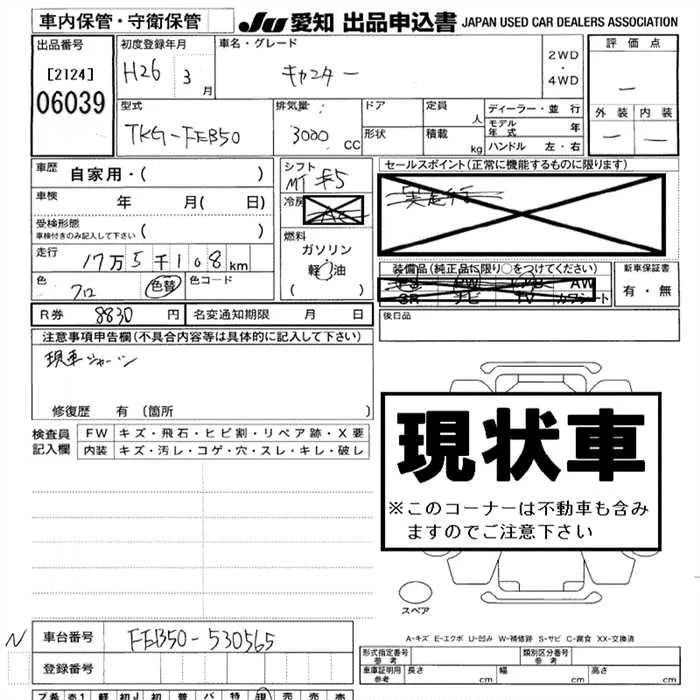 車内保管・守衛保管 JU愛知 出品申込書 JAPAN USED CAR DEALERS ASSOCIATION
出品番号 [2124] 06039
初度登録年月 H26 3月
車名・グレード キャンター
2WD・4WD
評価点 —
外装 — 内装 —
型式 TKG-FEB50
排気量 3000 CC
ドア 形状
定員 人
積載 kg
ディーラー・並行
モデル年式 年
ハンドル 左・右
車歴 自家用・( )
シフト MT 5
セールスポイント(正常に機能するものに限ります)
実走行
車検 年 月( 日)
冷房 AC
受検形態 ( )
車検付きのみ記入して下さい
燃料 ガソリン 軽油 ( )
走行 17万5千108km
色 クロ 色替 色コード
装備品(純正品に限り○をつけてください)
PW AW
SR ナビ TV カワシート
新車保証書 有・無
R券 8830円 名変通知期限 月 日
後日品
注意事項申告欄(不具合内容等は具体的に記入して下さい)
修復歴 有(箇所 )
現状車
※このコーナーは不動車も含みますのでご注意下さい
検査員記入欄
FW キズ・飛石・ヒビ割・リペア跡・X要
内装 キズ・汚レ・コゲ・穴・スレ・キレ・破レ
スペア
N 車台番号 FEB50-530565
登録番号
A-キズ E-エクボ U-凹み W-補修跡 S-サビ C-腐食 XX-交換済
形式指定番号 参考 類別区分番号 参考
車庫証明用 参考 長さ 幅 高さ
cm cm cm